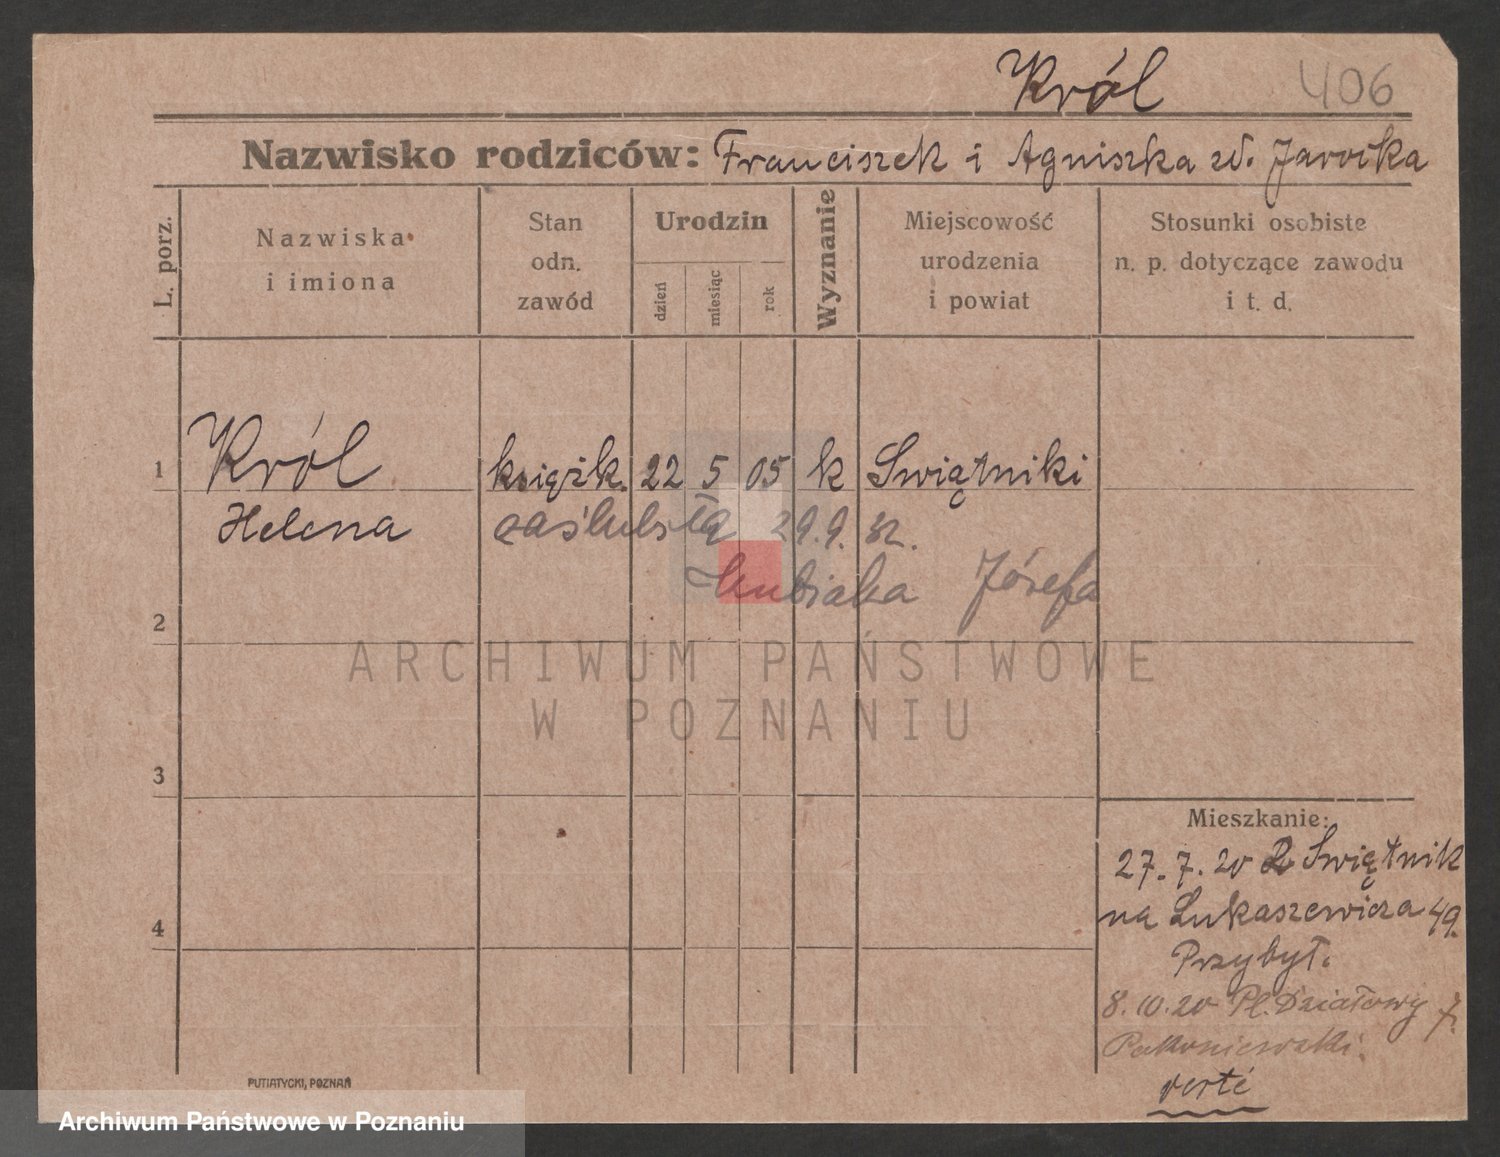 Król 406
Nazwisko rodziców: Franciszek i Agniszka zd. Jarocka
L. porz.
Nazwiska
i imiona
Stan
odn.
zawód
Urodzin
dzień
miesiąc
rok
Wyznanie
Miejscowość
urodzenia
i powiat
Stosunki osobiste
n. p. dotyczące zawodu
i t. d.
1 Król książk. 22 5 05 k Swiątniki
Helena zaślubiła 29.9.32.
Kubiaka Józefa
2
ARCHIWUM PAŃSTWOWE
W POZNANIU
3
Mieszkanie:
27.7.20 Z Swiętnik
na Łukaszewicza 49.
4
Przybył.
8.10.20 Pl. Działowy 7.
verté
PUTIATYCKI, POZNAŃ
Archiwum Państwowe w Poznaniu